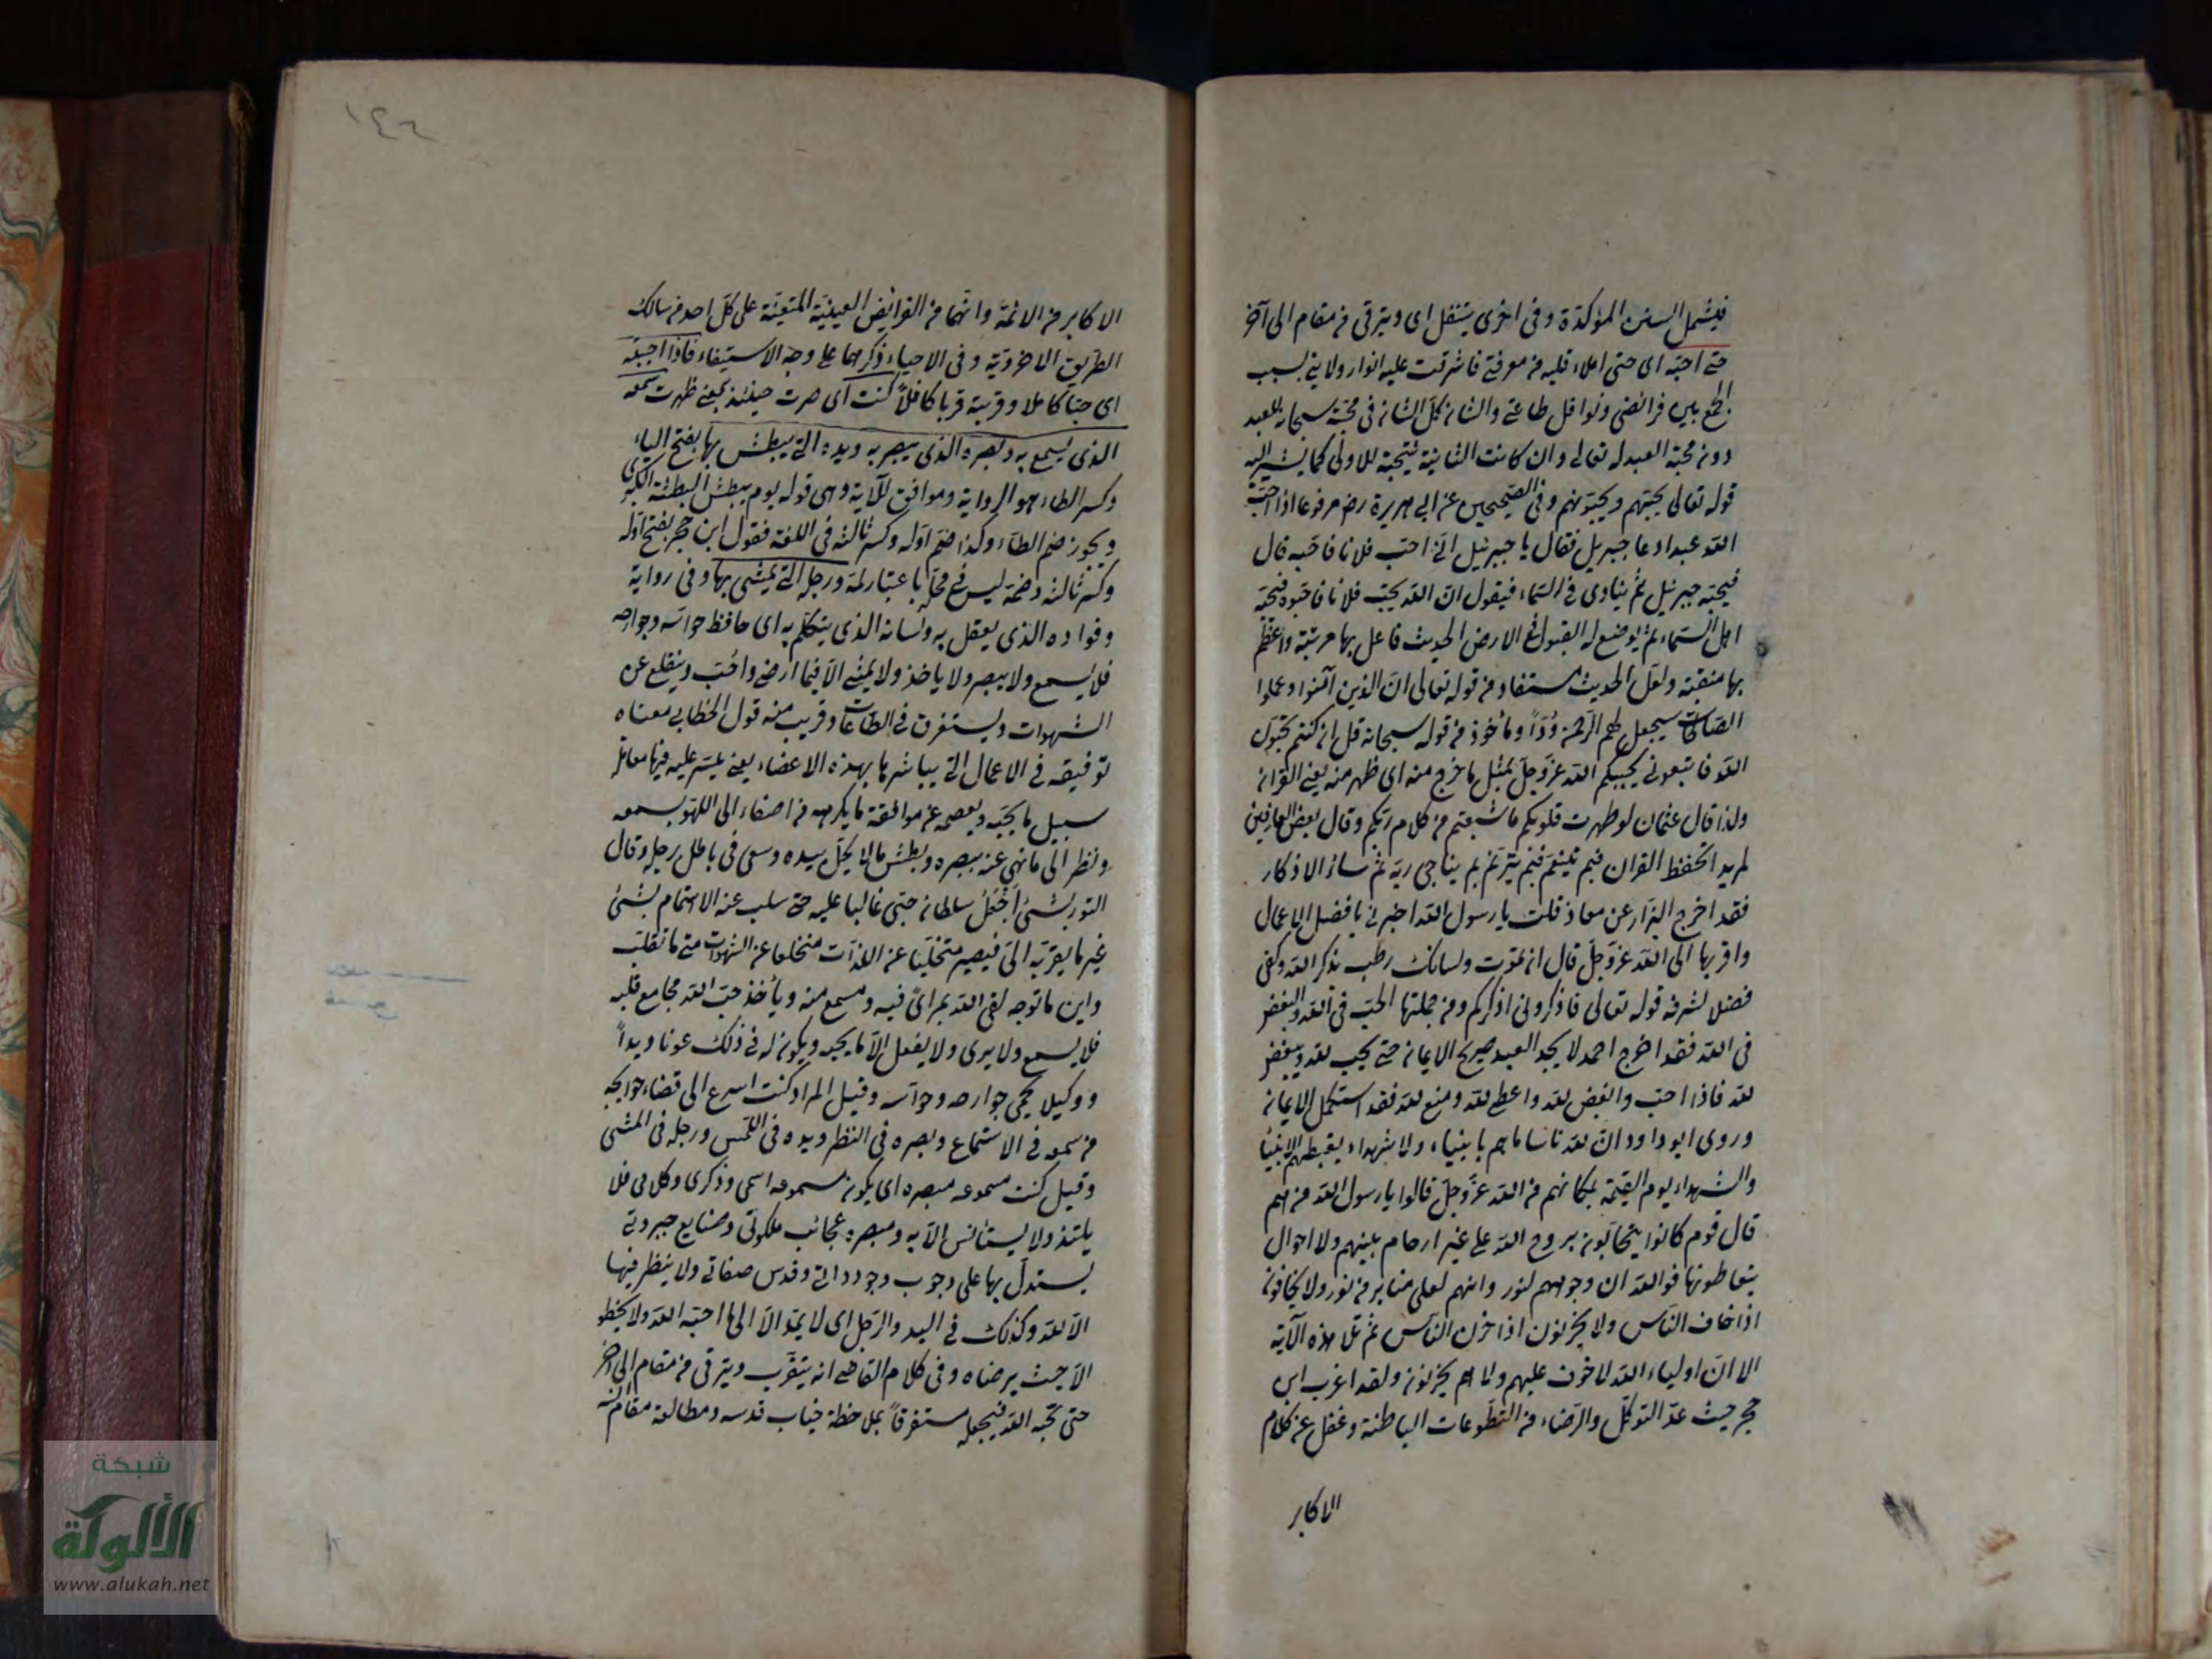 فيشمل السنن المؤكدة وفى اخرى يتنفل اى ويترقى من مقام الى آخر
حتى احبّه اى حتى املاء قلبه من معرفتى فاشرقت عليه انوار ولايتى بسبب
الجمع بين فرائضى ونوافل طاعتى والشان كل الشان فى محبة سبحانه للعبد
دون محبة العبد له تعالى وان كانت الثانية نتيجة للاولى كما يشير اليه
قوله تعالى يحبهم ويحبونهم وفى الصحيحين عن ابى هريرة رض مرفوعا اذا احبّ
الله عبدا دعا جبريل فقال يا جبرئيل انى احب فلانا فاحبه قال
فيحبه جبرئيل ثم ينادى فى السماء فيقول ان الله يحب فلانا فاحبوه فيحبّه
اهل السماء ثم يوضع له القبول فى الارض الحديث فاعل بها مرتبة واعظم
بها منقبة ولعل الحديث مستفاد من قوله تعالى ان الذين آمنوا وعملوا
الصالحات سيجعل لهم الرحمن ودّاً ومأخوذ من قوله سبحانه قل ان كنتم تحبون
الله فاتبعونى يحببكم الله عزّ وجلّ بمثل ما خرج منه اى ظهر منه يعنى القرآن
ولذا قال عثمان لو طهرت قلوبكم ما شبعتم من كلام ربّكم وقال بعض العارفين
لمريد اتحفظ القران فبم يتنعّم فبم يترنّم بم يناجى ربّه ثم سائر الاذكار
فقد اخرج البزّار عن معاذ قلت يا رسول الله اخبرنى بافضل الاعمال
واقربها الى الله عزّ وجلّ قال ان تموت ولسانك رطب بذكر الله وكفى
فضلا لشرفه قوله تعالى فاذكرونى اذكركم ومن جملتها الحبّ فى الله والبغض
فى الله فقد اخرج احمد لا يجد العبد صريح الايمان حتى يحب لله ويبغض
لله فاذا احبّ وابغض لله واعطى لله ومنع لله فقد استكمل الايمان
وروى ابو داود انّ لله ناسا ما هم بانبياء ولا شهداء يغبطهم الانبياء
والشهداء يوم القيمة بمكانهم من الله عزّ وجلّ قالوا يا رسول الله من هم
قال قوم كانوا يتحابّون بروح الله على غير ارحام بينهم ولا اموال
يتعاطونها فوالله ان وجوههم لنور وانهم لعلى منابر من نور ولا يخافون
اذا خاف النّاس ولا يحزنون اذا حزن النّاس ثم تلا هذه الآية
الا انّ اولياء الله لا خوف عليهم ولا هم يحزنون ولقد اغرب ابن
حجر حيث عدّ التوكل والرضاء من التطوعات الباطنة وغفل عن كلام
الاكابر
١٤٦
الاكابر من الائمّة وانّهما من الفرائض العينيّة المتعيّنة على كل احد من سالك
الطريق الاخرويّة وفى الاحياء ذكرهما على وجه الاستيفاء فاذا احببته
اى حبّا كاملا وقربته قربا كافلاً كنت اى صرت حينئذ بمعنى ظهرت سمعه
الذى يسمع به وبصره الذى يبصر به ويده التى يبطش بها بفتح الياء
وكسر الطاء هو الرواية وموافق للآية وهى قوله يوم يبطش البطشة الكبرى
ويجوز ضم الطاء وكذا ضمّ اوّله وكسر ثالثه فى اللغة فقول ابن حجر بفتح اوّله
وكسر ثالثه وضمّه ليس فى محلّه باعتبار لمّه ورجله التى يمشى بها وفى رواية
وفواده الذى يعقل به ولسانه الذى يتكلّم به اى حافظ حواسّه وجوارحه
فلا يسمع ولا يبصر ولا ياخذ ولا يمشى الّا فيما ارضى واحب وينقلع عن
الشهوات ويستغرق فى الطّاعات وقريب منه قول الخطابى معناه
توفيقه فى الاعمال التى يباشرها بهذه الاعضاء يعنى ييسّر عليه فيها
سبيل ما يحبّه ويعصمه عن موافقة ما يكرهه من اصغاء الى اللهو بسمعه
ونظر الى ما نهى عنه ببصره وبطش ما لا يحلّ بيده وسعى فى باطل برجله وقال
التوربشتى اَجْعَلُ سلطان حبّى غالبا عليه حتى سلب عنه الاهتمام بشئ
غير ما يقربّه الىّ فيصير متخلّيا عن اللذّات منخلعا عن الشهوات متى ما تقلّب
واين ما توجه لقى الله بمرأى فيه ومسمع منه ويأخذ حبّ الله مجامع قلبه
فلا يسمع ولا يرى ولا يفعل الّا ما يحبه ويكون له فى ذلك عونا ويداً
ووكيلا يحمى جوارحه وحواسه وقيل المراد كنت اسرع الى قضاء حوائجه
من سمعه فى الاستماع وبصره فى النظر ويده فى اللّمس ورجله فى المشى
وقيل كنت مسموعه مبصره اى يكون مسموعه اسمى وذكرى وكلامى فلا
يلتذ ولا يستأنس الّا به ومبصره عجائب ملكوتى وصنايع جبروتى
يستدلّ بها على وجوب وجود ذاتى وقدس صفاتى ولا ينظر فيها
الّا لله وكذلك فى اليد والرّجل اى لا يمدّ الّا الى ما احبّه الله ولا يخطو
الّا حيث يرضاه وفى كلام القاضى انه يتقرّب ويترقى من مقام الى آخر
حتى يحبّه الله فيجعله مستغرقاً بملاحظة جناب قدسه ومطالعة مقام انسه
شبكة
الألوكة
www.alukah.net